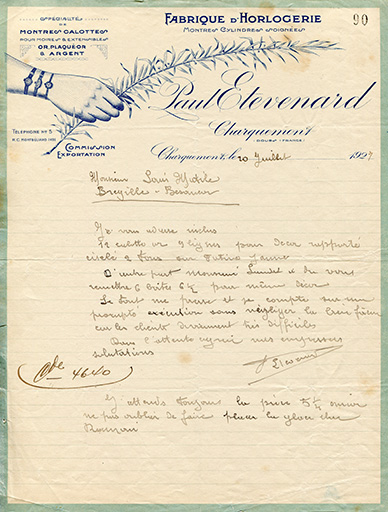 SPÉCIALITÉS
DE
MONTRES CALOTTES
POUR MOIRES & EXTENSIBLES
OR, PLAQUÉ OR
& ARGENT
FABRIQUE D'HORLOGERIE
MONTRES CYLINDRES SOIGNÉES
90
Paul Etevenard
Charquemont
DOUBS (FRANCE)
TÉLÉPHONE Nº 5
R.C. MONTBÉLIARD
COMMISSION
EXPORTATION
Charquemont, le 20 Juillet 1927
Monsieur Louis
Bregille - Besancon
Je vous adresse inclus
12 calotte or 9 lignes pour decor rapporté
D'autre part monsieur de vous
remettre 6 boîtes 6 ¾ pour même décor
Le tout me presse et je compte sur une
prompte execution sans négliger la
car les clients deviennent très difficiles
Dans l'attente mes empressées
salutations
Cde 4640
J'attends toujours la pièce 5 ¼
ne pas oublier de faire placer la glace chez